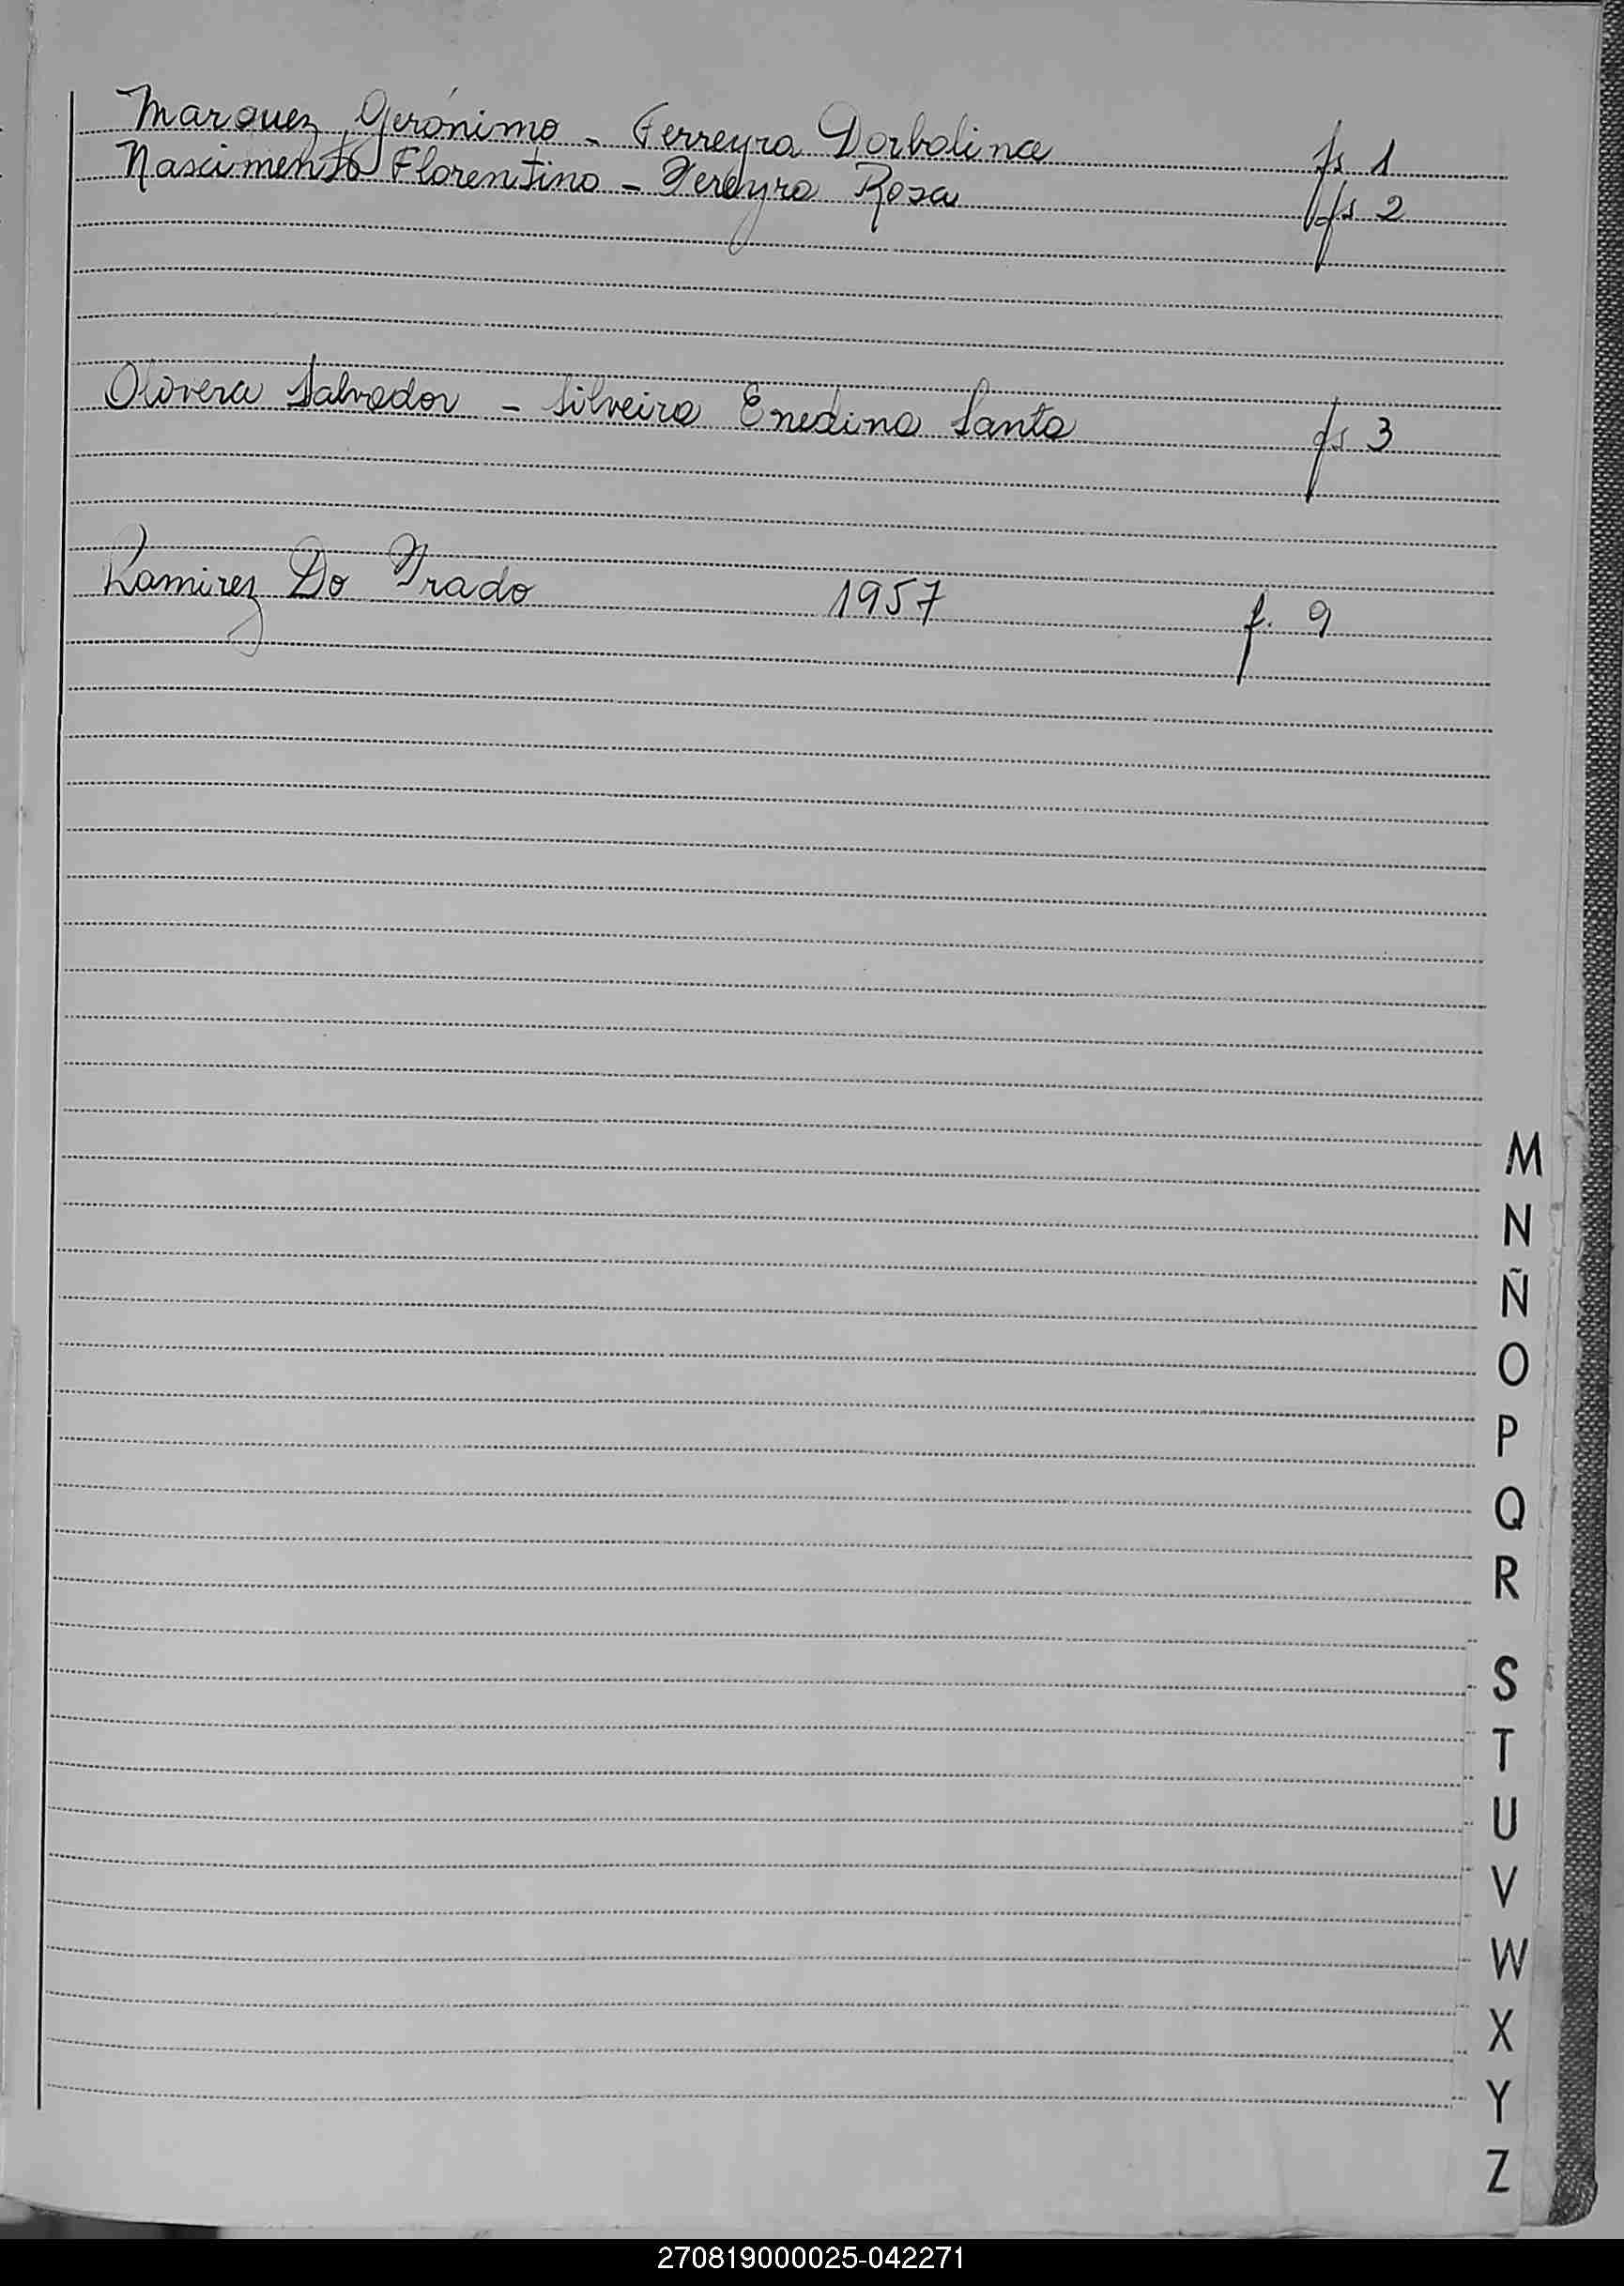 Marquez Gerónimo - Ferreyra Dorbalina fs 1
Nascimento Florentino - Fereyra Rosa fs 2
Olivera Salvador - Silveira Enedina Santa fs 3
Ramirez Do Prado 1957 f. 9
M
N
Ñ
O
P
Q
R
S
T
U
V
W
X
Y
Z
270819000025-042271